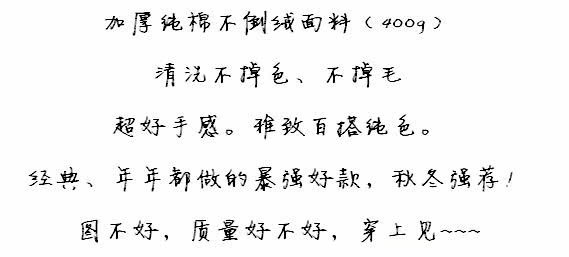 加厚纯棉不倒绒面料（400g）
清洗不掉色、不掉毛
超好手感。雅致百搭纯色。
经典、年年都做的暴强好款，秋冬强荐！
图不好，质量好不好，穿上见~~~